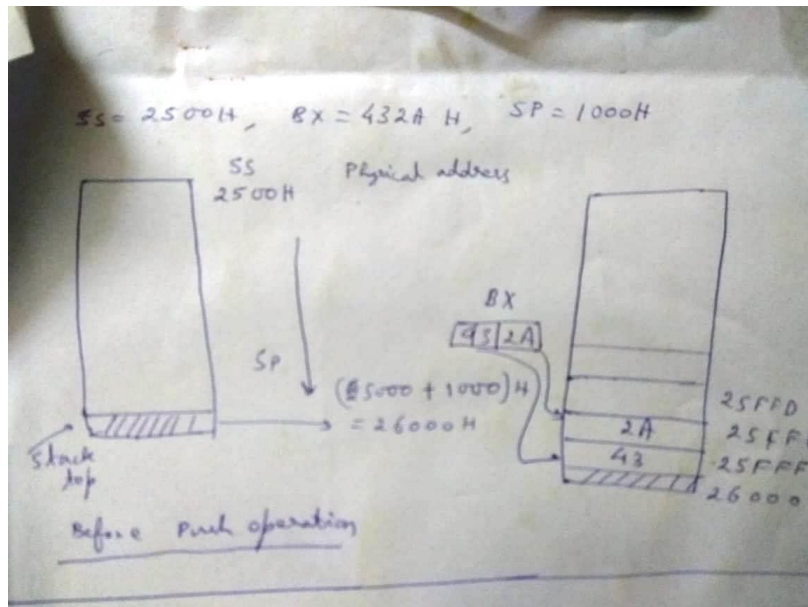 SS = 2500H, BX = 432A H, SP = 1000H
SS
2500H
Physical address
BX
43 2A
SP
(25000 + 1000)H
= 26000H
Stack
top
2A
43
25FFD
25FF
25FFF
26000
Before Push operation